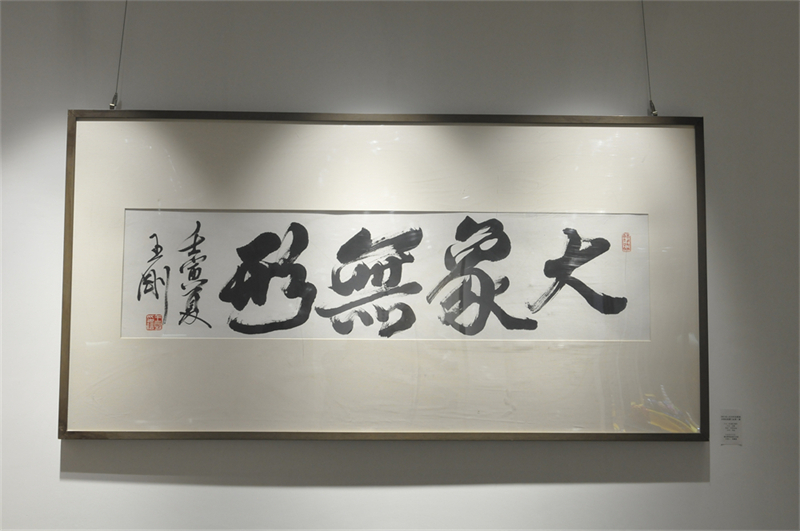 大象無形
壬寅夏
王剛